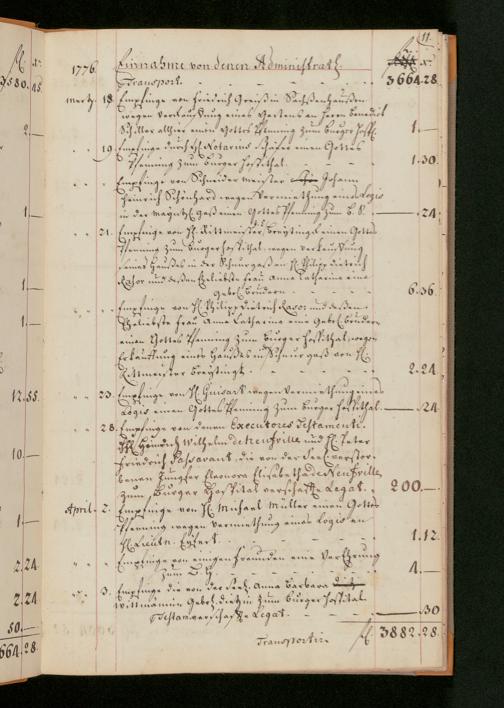 11.
1776. Einnahme von denen Administrath.
Transport. 3664.28
Mertz. 18. Empfinge von Friedrich Greiß in Sachsenhaußen
wegen verkauffung eines Gartens an Herrn Benedict
Schiller allhier einen Gottes Pfenning zum burger Hosp. 1.—
19. Empfinge durch H. Notarius Schäfer einen Gottes
Pfenning zum burger Hospithal 1.30
Empfinge von Schneider meister Johann
Heinrich Schönhard wegen Vermiethung eines Logis
in der Mayntz gaß einen Gottes Pfenning zum b. H. —.24.
21. Empfinge von H. Rittmeister Breyting einen Gottes
Pfenning zum burger hospithal wegen verkauffung
seines Haußes in der Schnurgaß an H. Philipp Dietrich
Rasor und deßen Eheliebste frau Anna Catharina eine
Gebohr. Brüdern 6.36.
Empfinge von H. Philipp Dietrich Rasor und deßen
Eheliebste frau Anna Catharina eine Gebohr. Brüdern
einen Gottes Pfenning zum burger Hospithal wegen
Erkauffung eines Haußes in Schnurgaß von H.
Rittmeister Breyting 2.24
23. Empfinge von H. Guisart wegen Vermiethung eines
Logis einen Gottes Pfenning zum burger Hospithal —.24
28. Empfinge von denen Executores Testamenti
H. Heinrich Wilhelm de Neufville und H. Peter
Friedrich Passavant, die von der Seel. verstor-
benen Jungfer Eleonora Elisabetha de Neufville
zum Burger Hospital verschaffte Legat. 200.—
April. 2. Empfinge von H. Michael Müller einen Gottes
Pfenning wegen Vermiethung eines Logis an
H. Lieutn. 1.12.
Empfinge von einigen freunden eine Verehrung
4.—
3. Empfinge die von der Seel. Anna Barbara
Wittmännin Gebohr. Dietzin zum burger Hospital
Testam. verschaffte Legat. —.30
Transportire f 3882.28.
3580.45
2.—
1.—
1.—
1.—
12.55.
10.—
1.—
2.24
2.24
50.—
664.28